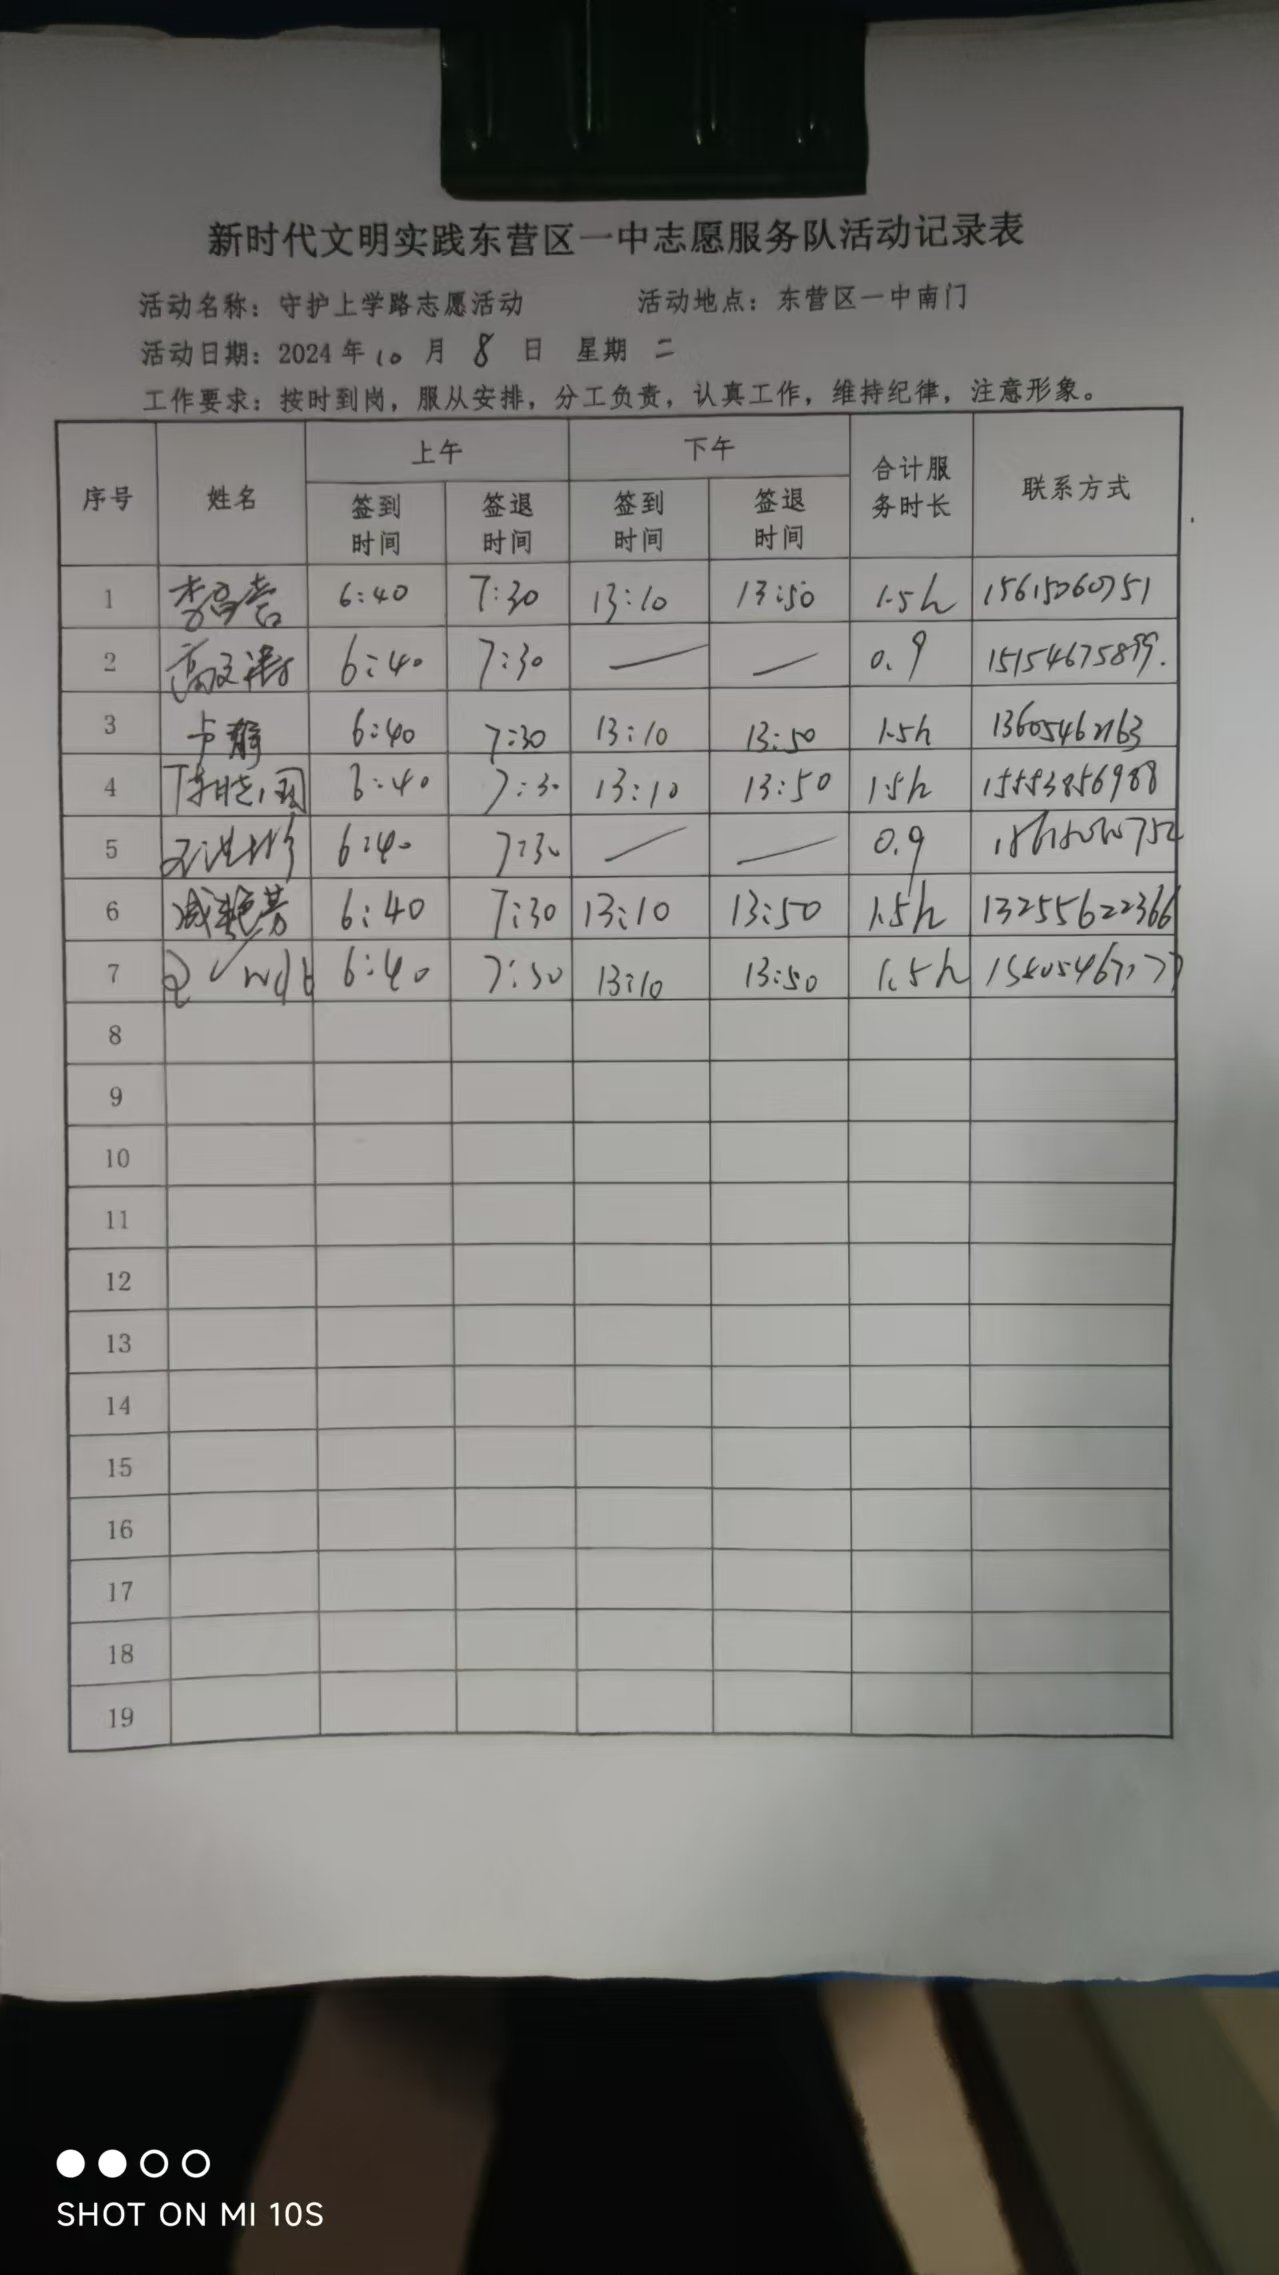 新时代文明实践东营区一中志愿服务队活动记录表
活动名称：守护上学路志愿活动 活动地点：东营区一中南门
活动日期：2024年10月8日 星期二
工作要求：按时到岗，服从安排，分工负责，认真工作，维持纪律，注意形象。
序号 姓名 上午 下午 合计服务时长 联系方式
签到时间 签退时间 签到时间 签退时间
1 6:40 7:30 13:10 13:50 1.5h
2 6:40 7:30 — — 0.9 15154675899.
3 卢静 6:40 7:30 13:10 13:50 1.5h
4 6:40 7:30 13:10 13:50 1.5h 15553856988
5 6:40 7:30 — — 0.9
6 6:40 7:30 13:10 13:50 1.5h 13255622366
7 6:40 7:30 13:10 13:50 1.5h
8
9
10
11
12
13
14
15
16
17
18
19
SHOT ON MI 10S